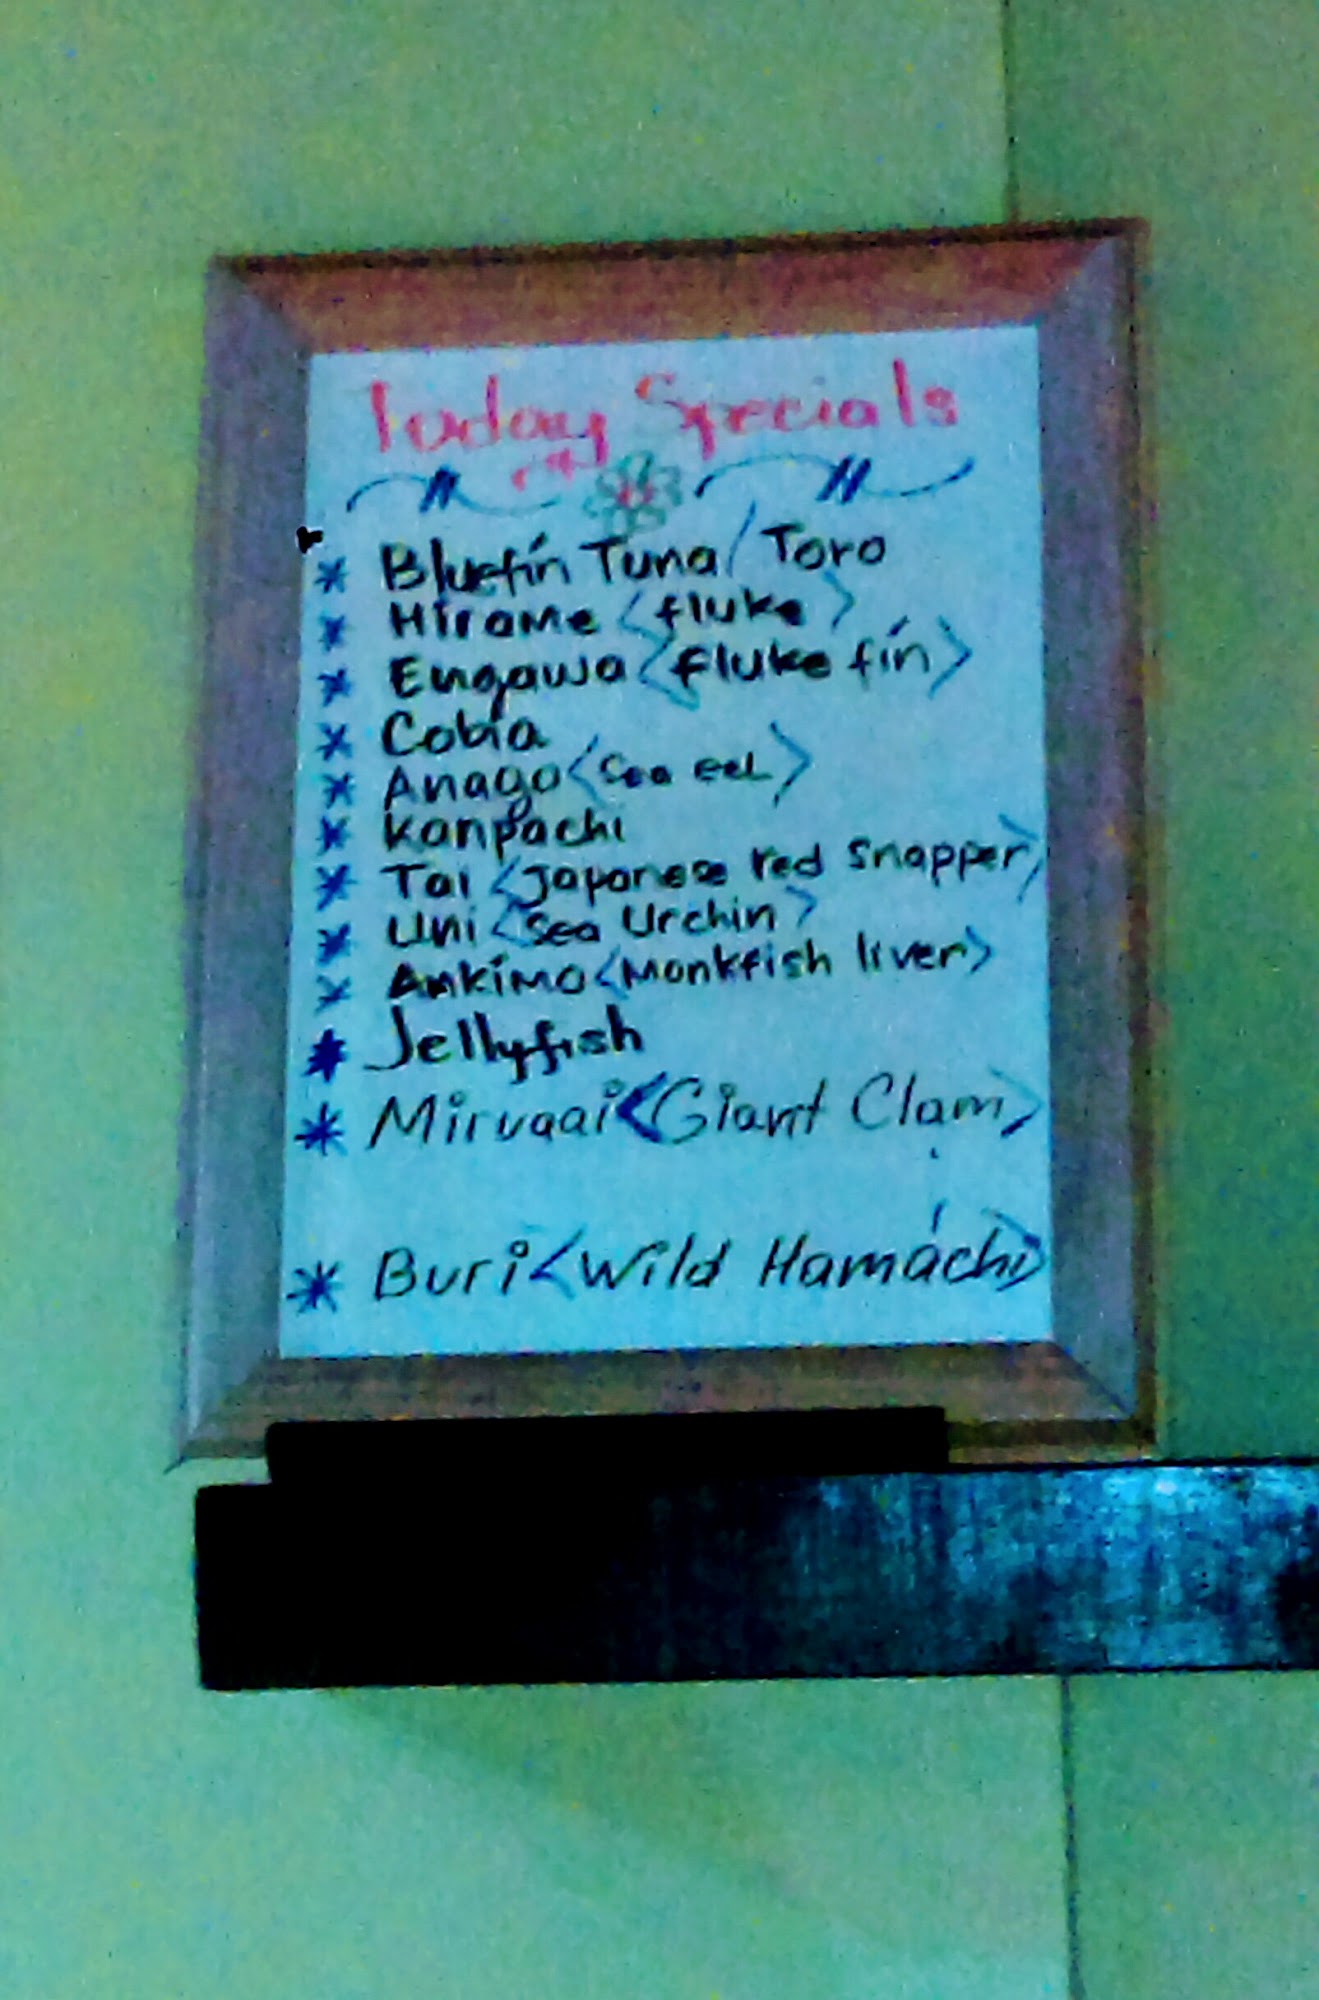 Today Specials
* Bluefin Tuna / Toro
* Hirame <fluke>
* Engawa <fluke fin>
* Cobia
* Anago <Sea eel>
* Kanpachi
* Tai <Japanese red snapper>
* Uni <Sea Urchin>
* Ankimo <Monkfish liver>
* Jellyfish
* Mirugai <Giant Clam>
* Buri <Wild Hamachi>